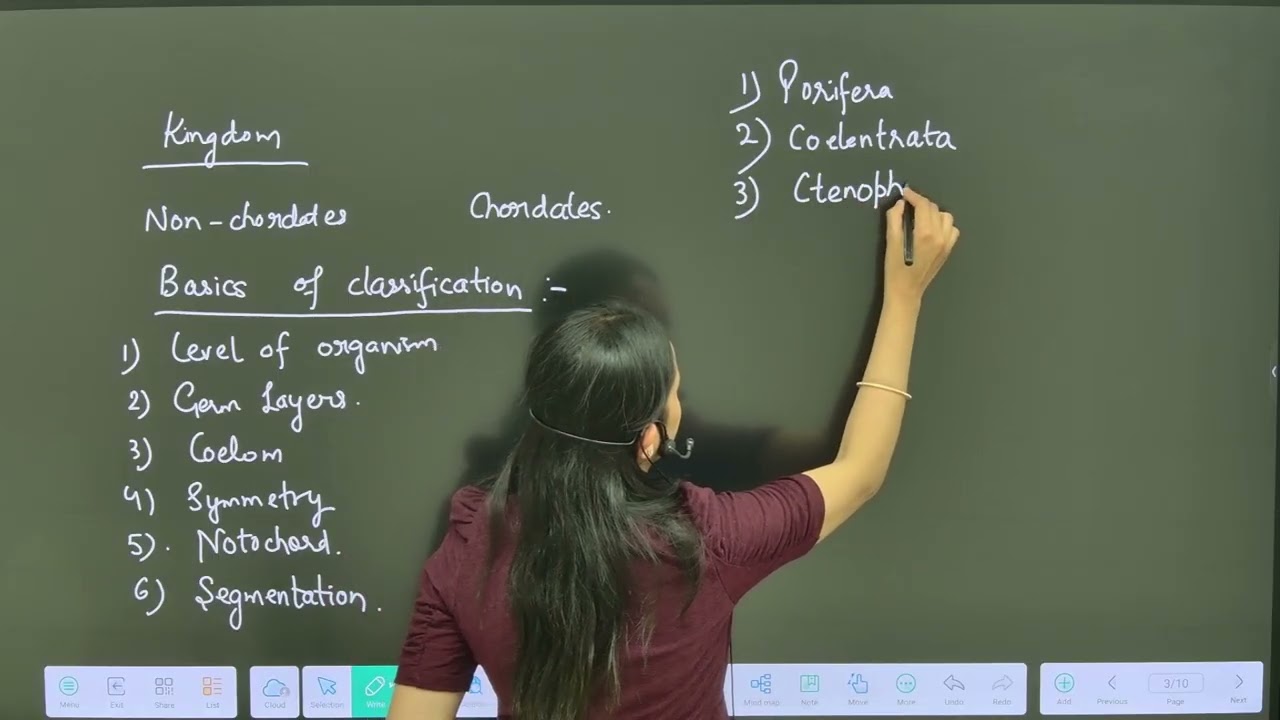 Kingdom
Non-chordates Chordates.
Basics of classification :-
1) Level of organism
2) Germ Layers.
3) Coelom
4) Symmetry
5). Notochord.
6) Segmentation.
1) Porifera
2) Coelentrata
3) Ctenoph
Menu Exit Share List Cloud Selection Write Mind map Note Move More Undo Redo Add Previous 3/10 Page Next